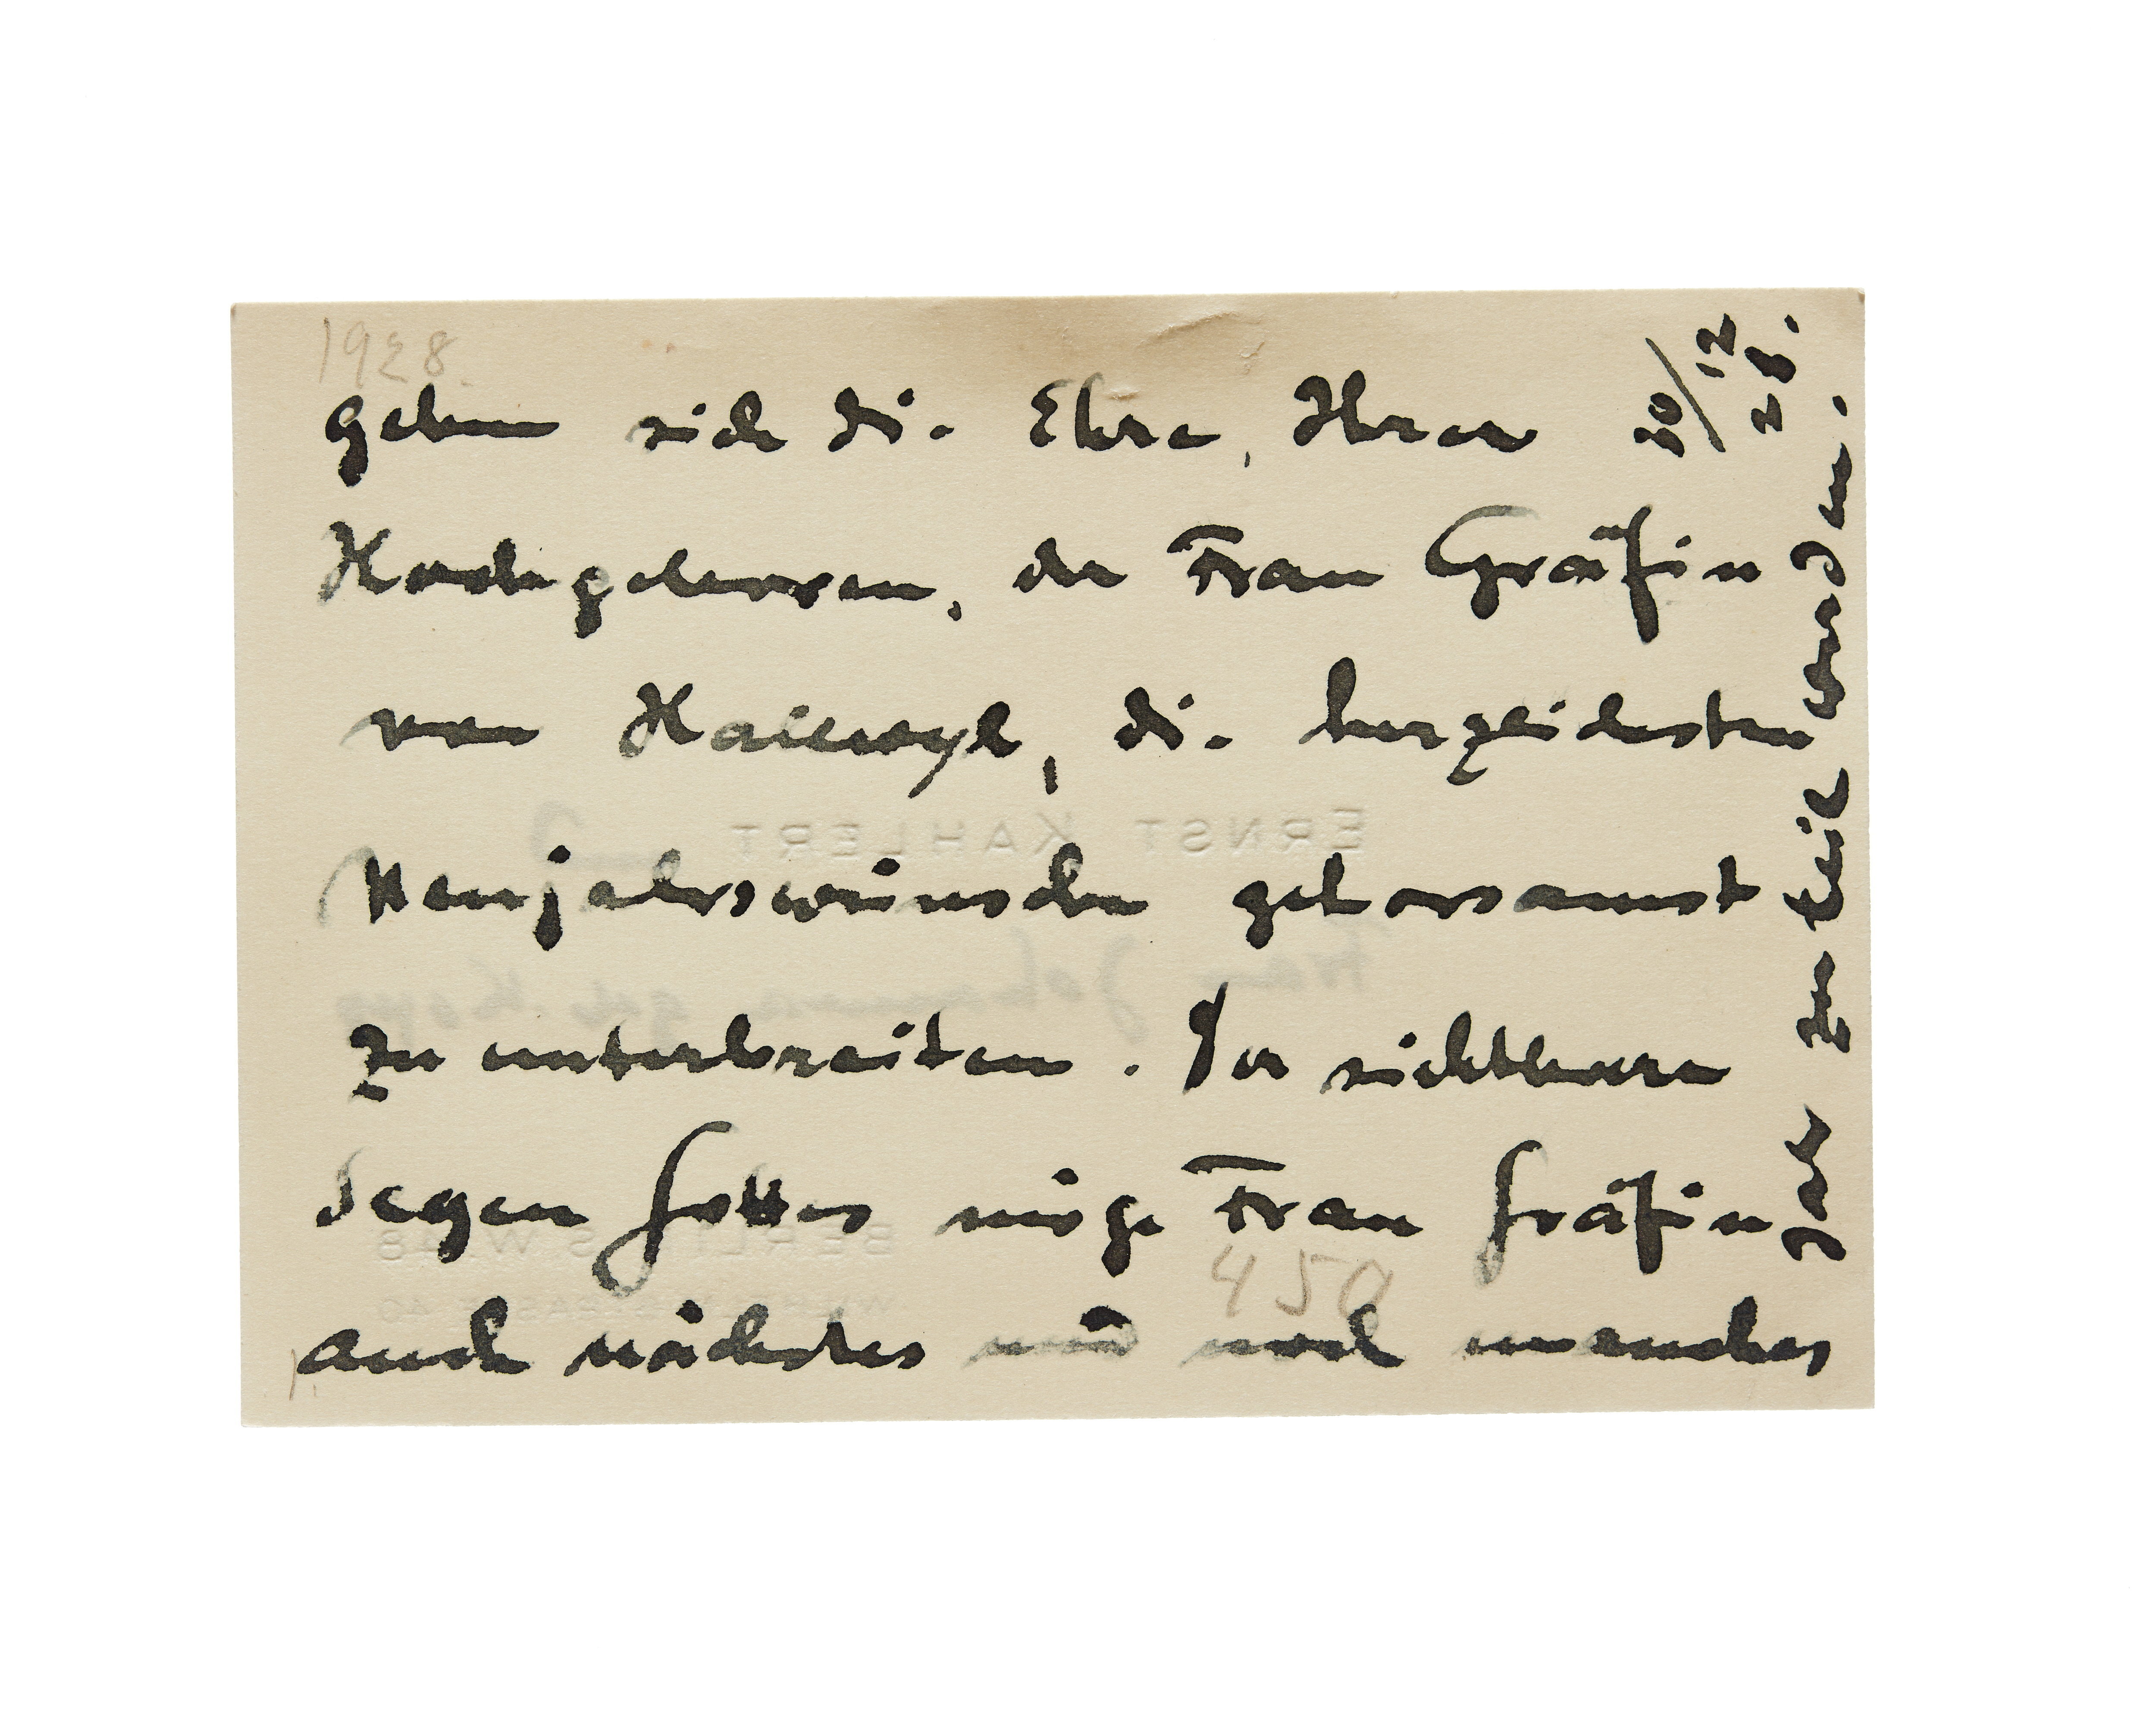 1928.
30/12
28.
geben sich die Ehre, Ihrer
Hochgeboren, der Frau Gräfin
von Hallwyl, die herzlichsten
Neujahrswünsche gehorsamst
zu unterbreiten. Der sichtbare
Segen Gottes möge Frau Gräfin
auch nächstes und noch manches
Jahr zu teil werden.
ERNST KAHLERT
Frau Johanna geb.
BERLIN S.W. 48
450